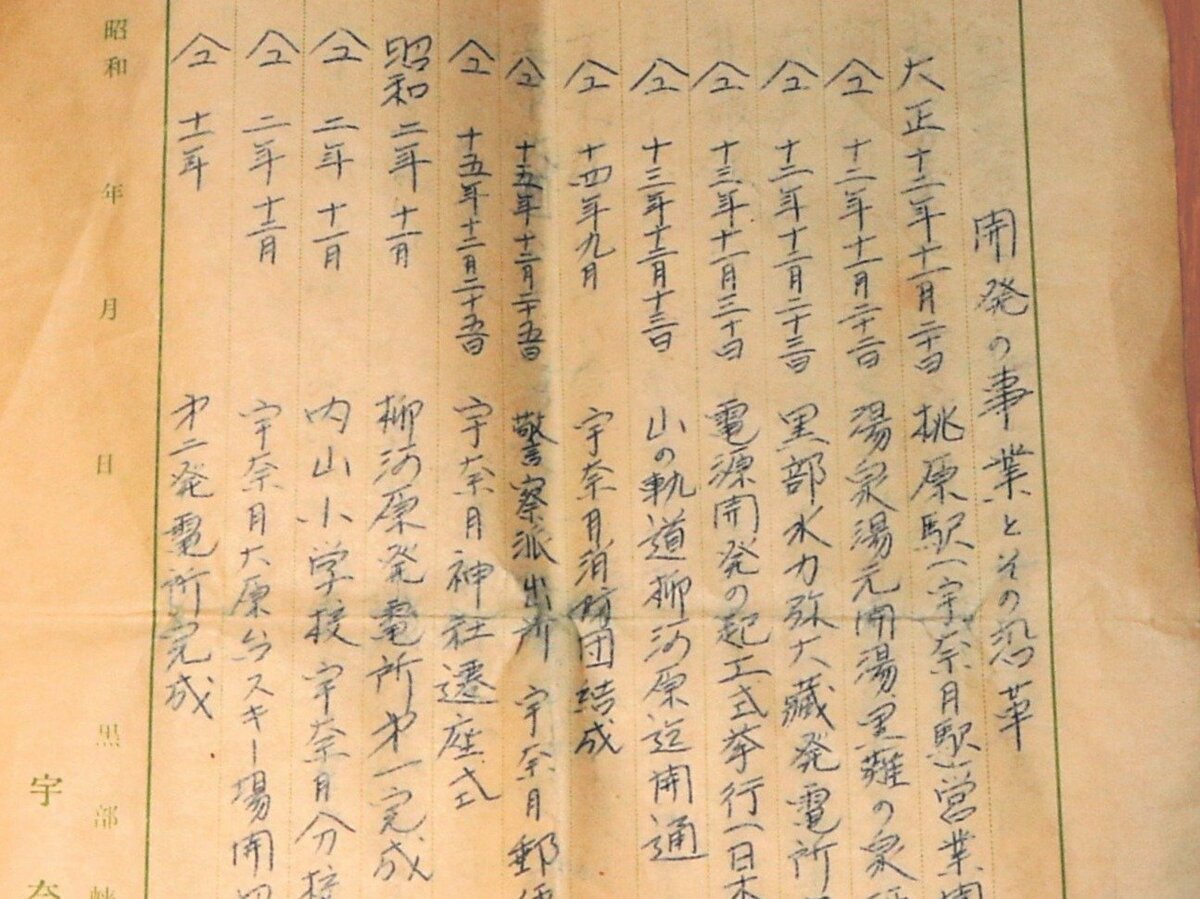 開発の事業とその沿革
大正十二年十一月二十一日 桃原駅―宇奈月駅営業開
〃 十二年十一月二十二日 湯泉湯元開湯黒薙の泉
〃 十二年十二月二十三日 黒部水力弥太蔵発電所
〃 十三年十一月三十日 電源開発の起工式挙行―日本
〃 十三年十二月十三日 山の軌道柳河原迄開通
〃 十四年九月 宇奈月消防団結成
〃 十五年十二月二十五日 警察派出所 宇奈月郵便
〃 十五年十二月二十五日 宇奈月神社遷座式
昭和二年十一月 柳河原発電所第一完成
〃 二年十一月 内山小学校宇奈月分校
〃 二年十二月 宇奈月大原台スキー場開
〃 十一年 第二発電所完成
昭和 年 月 日 黒部峡
宇奈